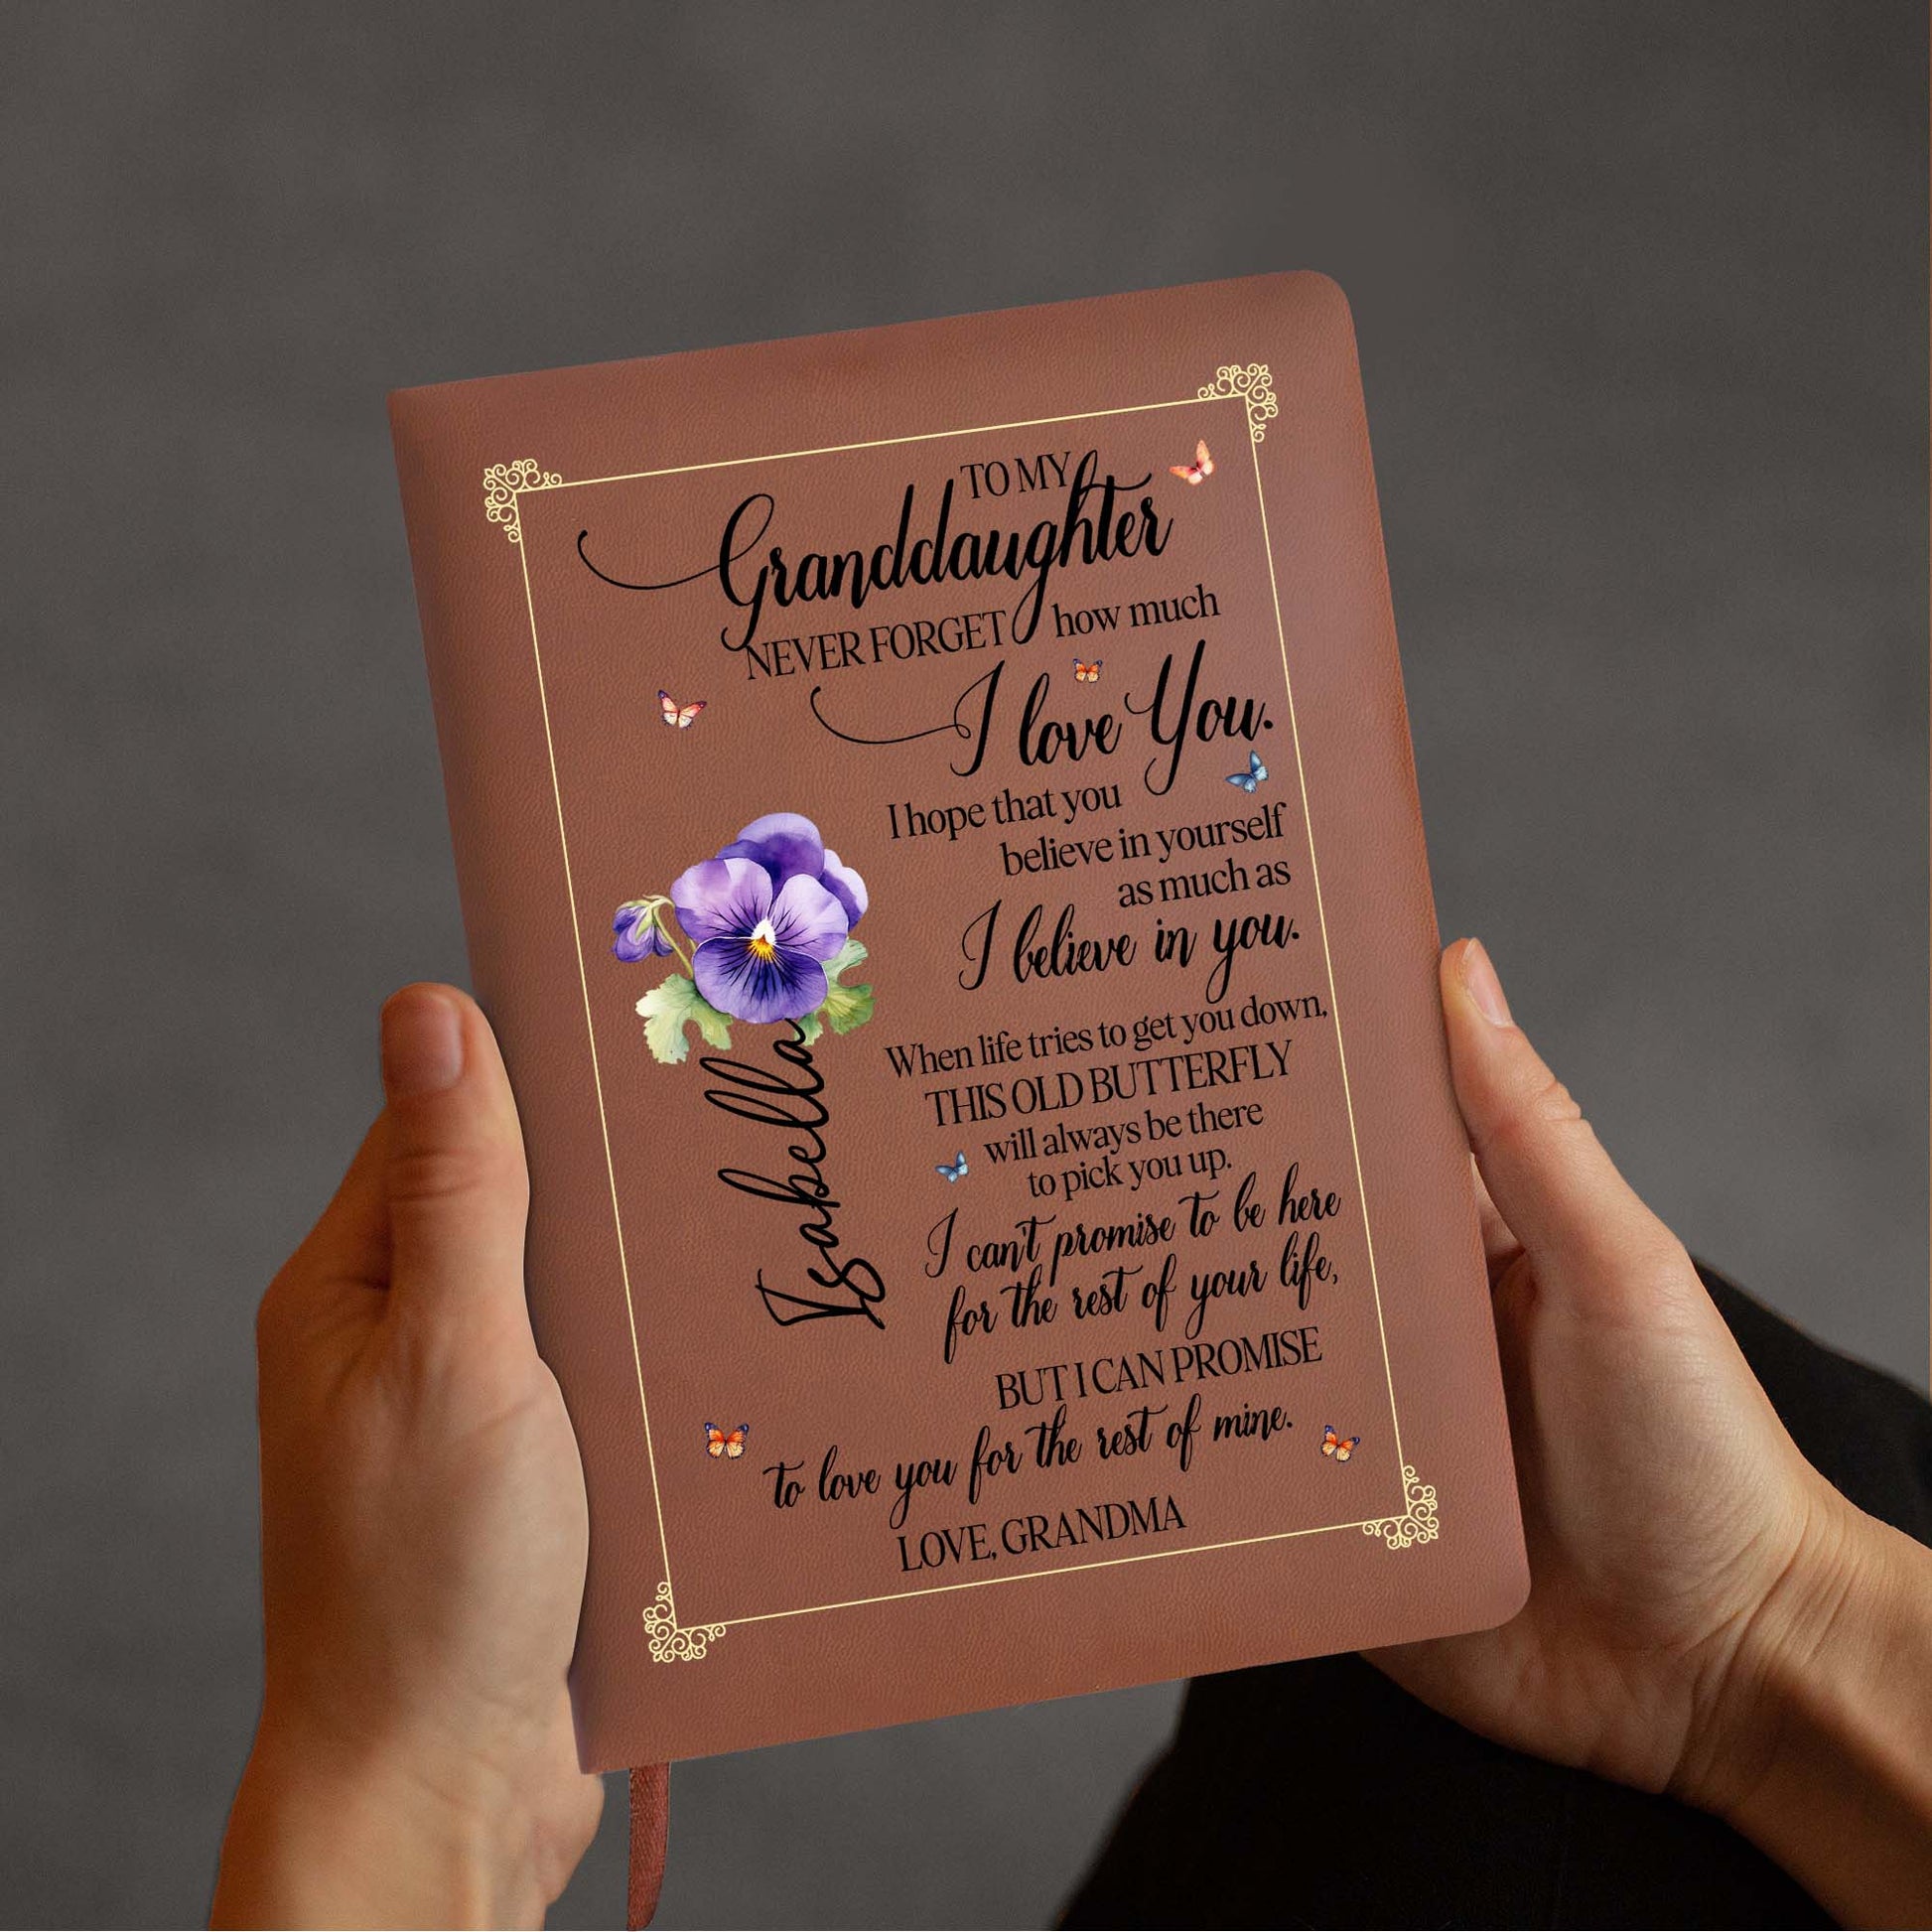 TO MY
Granddaughter
NEVER FORGET how much
I love You.
I hope that you
believe in yourself
as much as
I believe in you.
When life tries to get you down,
THIS OLD BUTTERFLY
will always be there
to pick you up.
I can't promise to be here
for the rest of your life,
BUT I CAN PROMISE
to love you for the rest of mine.
LOVE, GRANDMA
Isabella